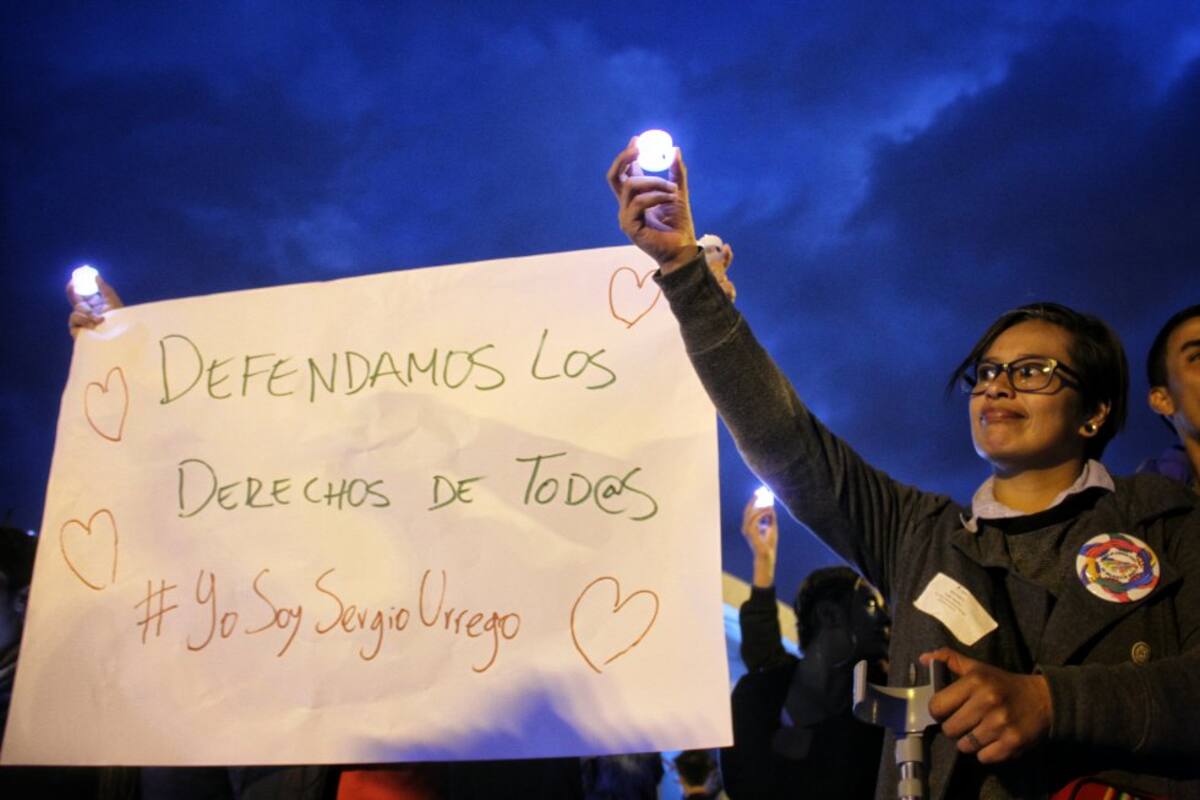 DEFENDAMOS LOS
DERECHOS DE TOD@S
#YoSoySergioUrrego